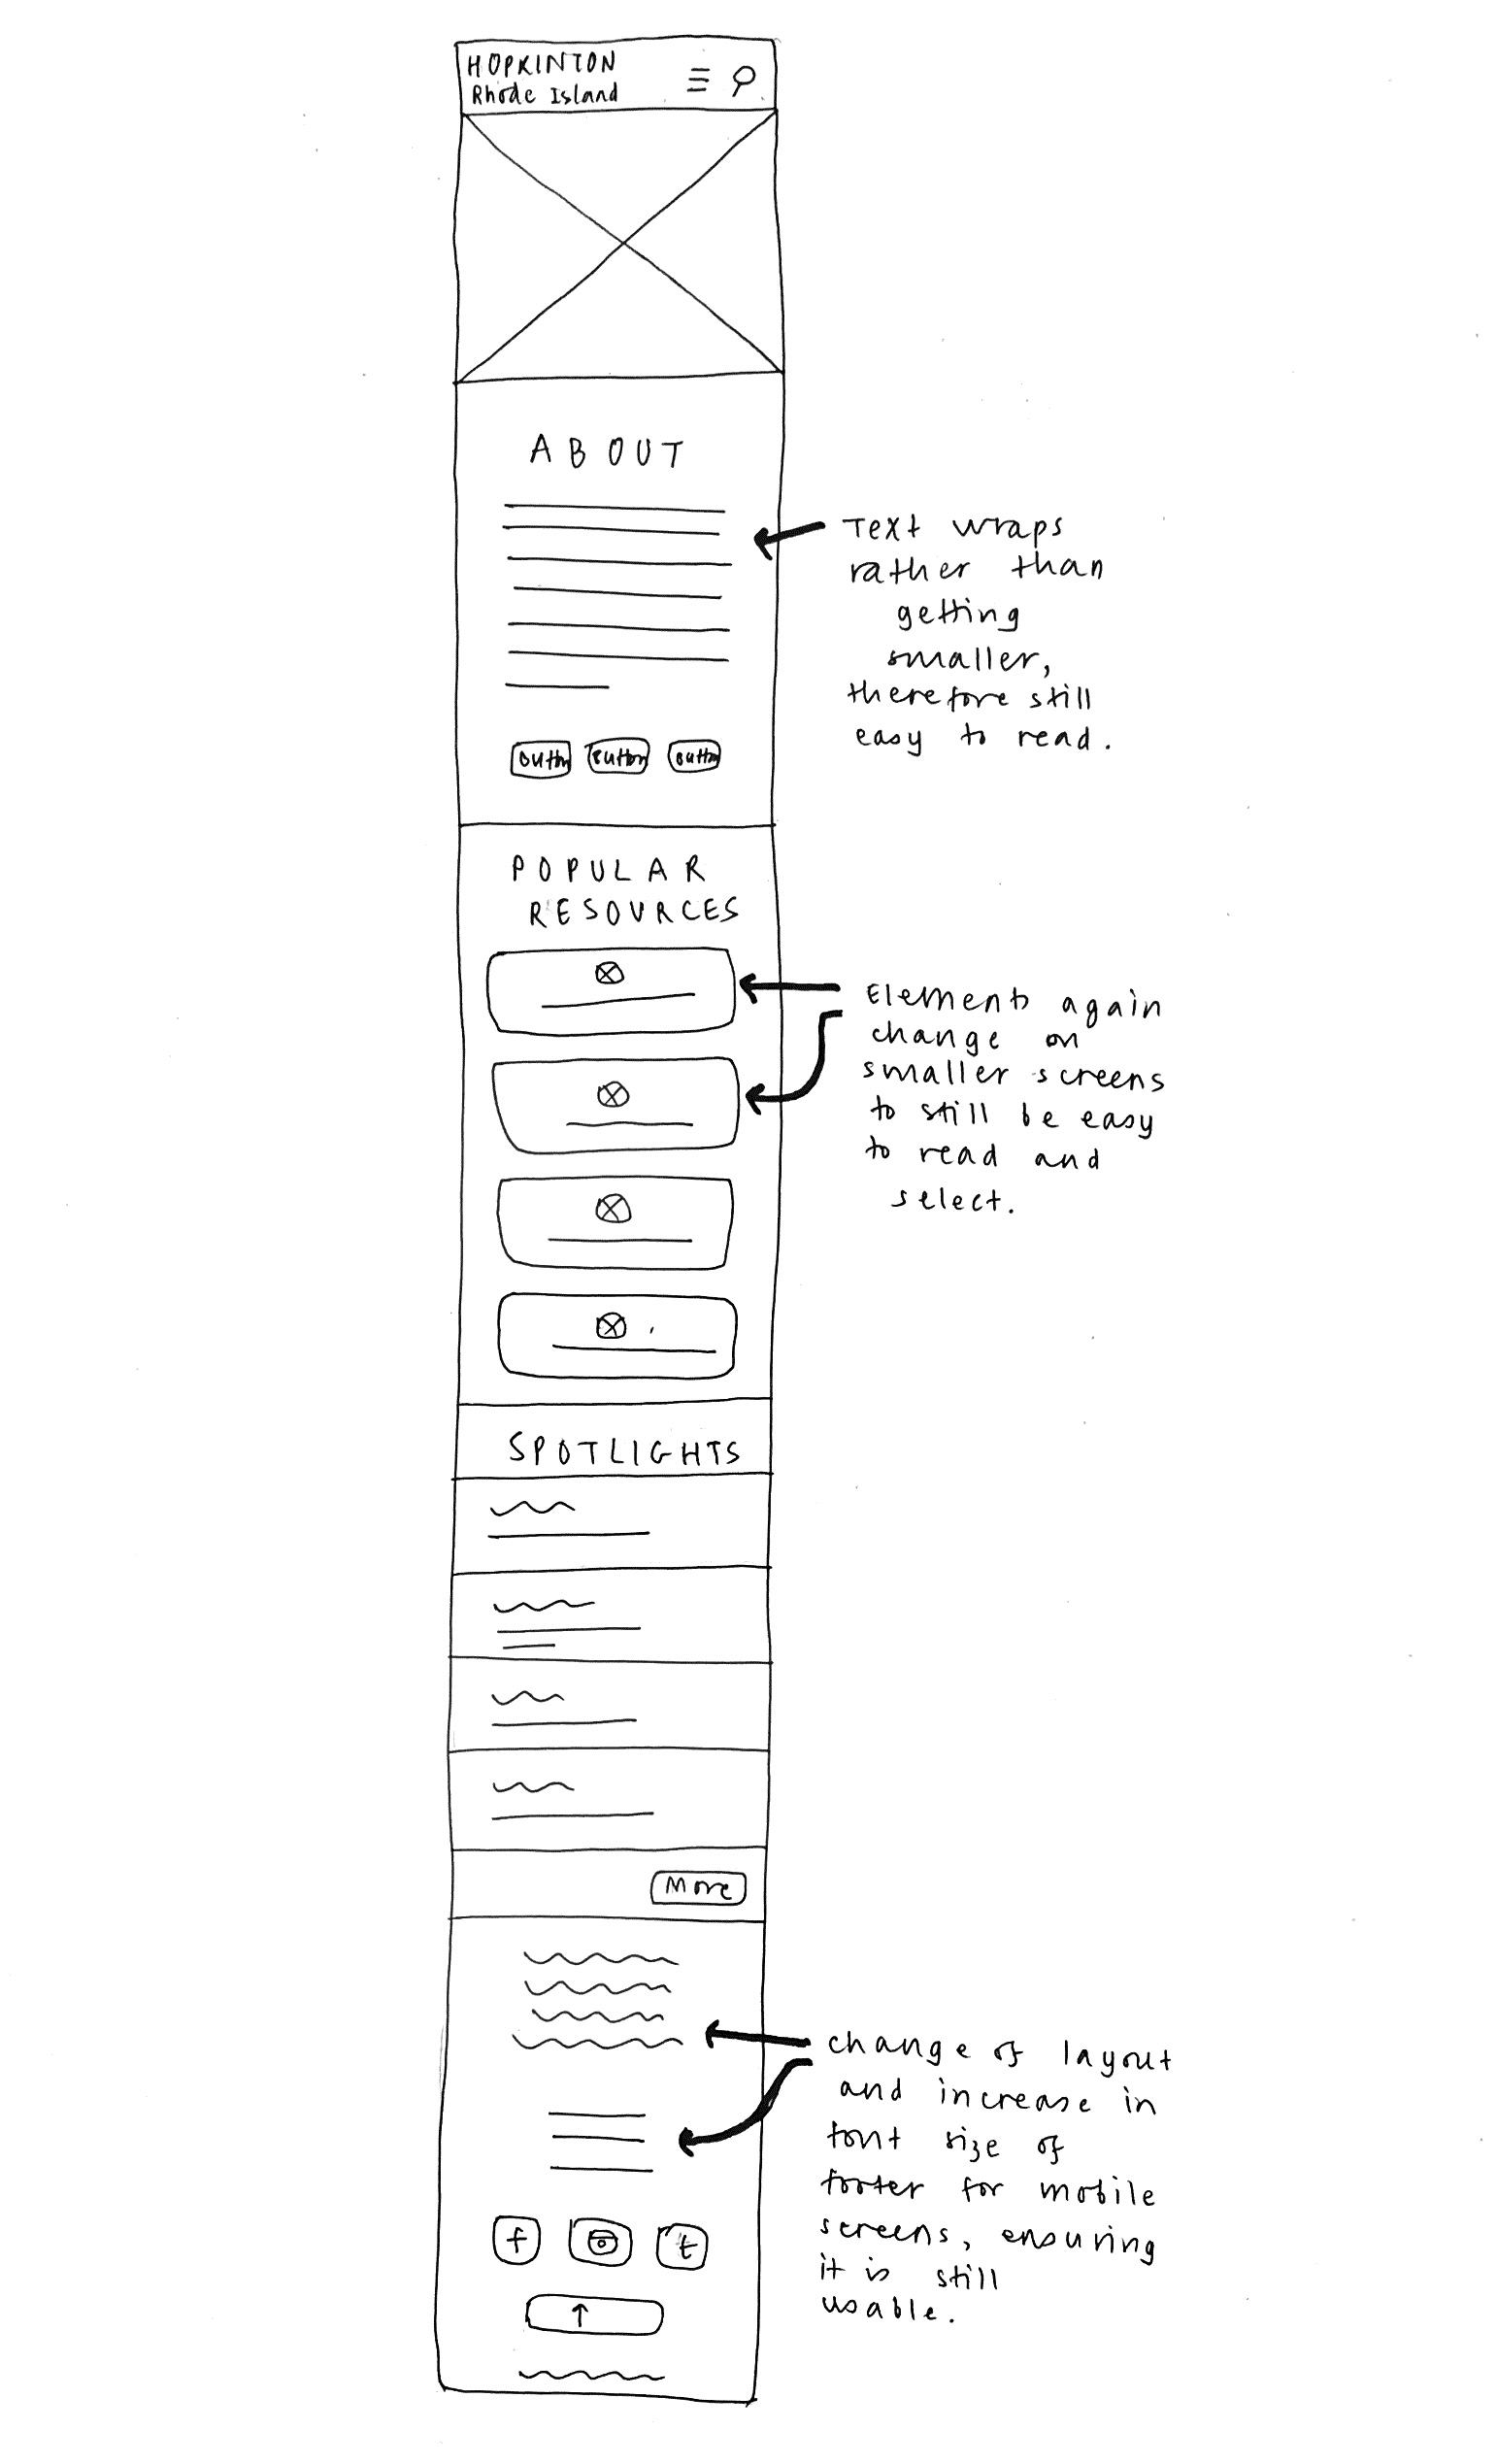 HOPKINTON
Rhode Island
ABOUT
Text wraps
rather than
getting
smaller,
therefore still
easy to read.
Button Button Button
POPULAR
RESOURCES
Elements again
change on
smaller screens
to still be easy
to read and
select.
SPOTLIGHTS
More
change of layout
and increase in
font size of
footer for mobile
screens, ensuring
it is still
usable.
f t